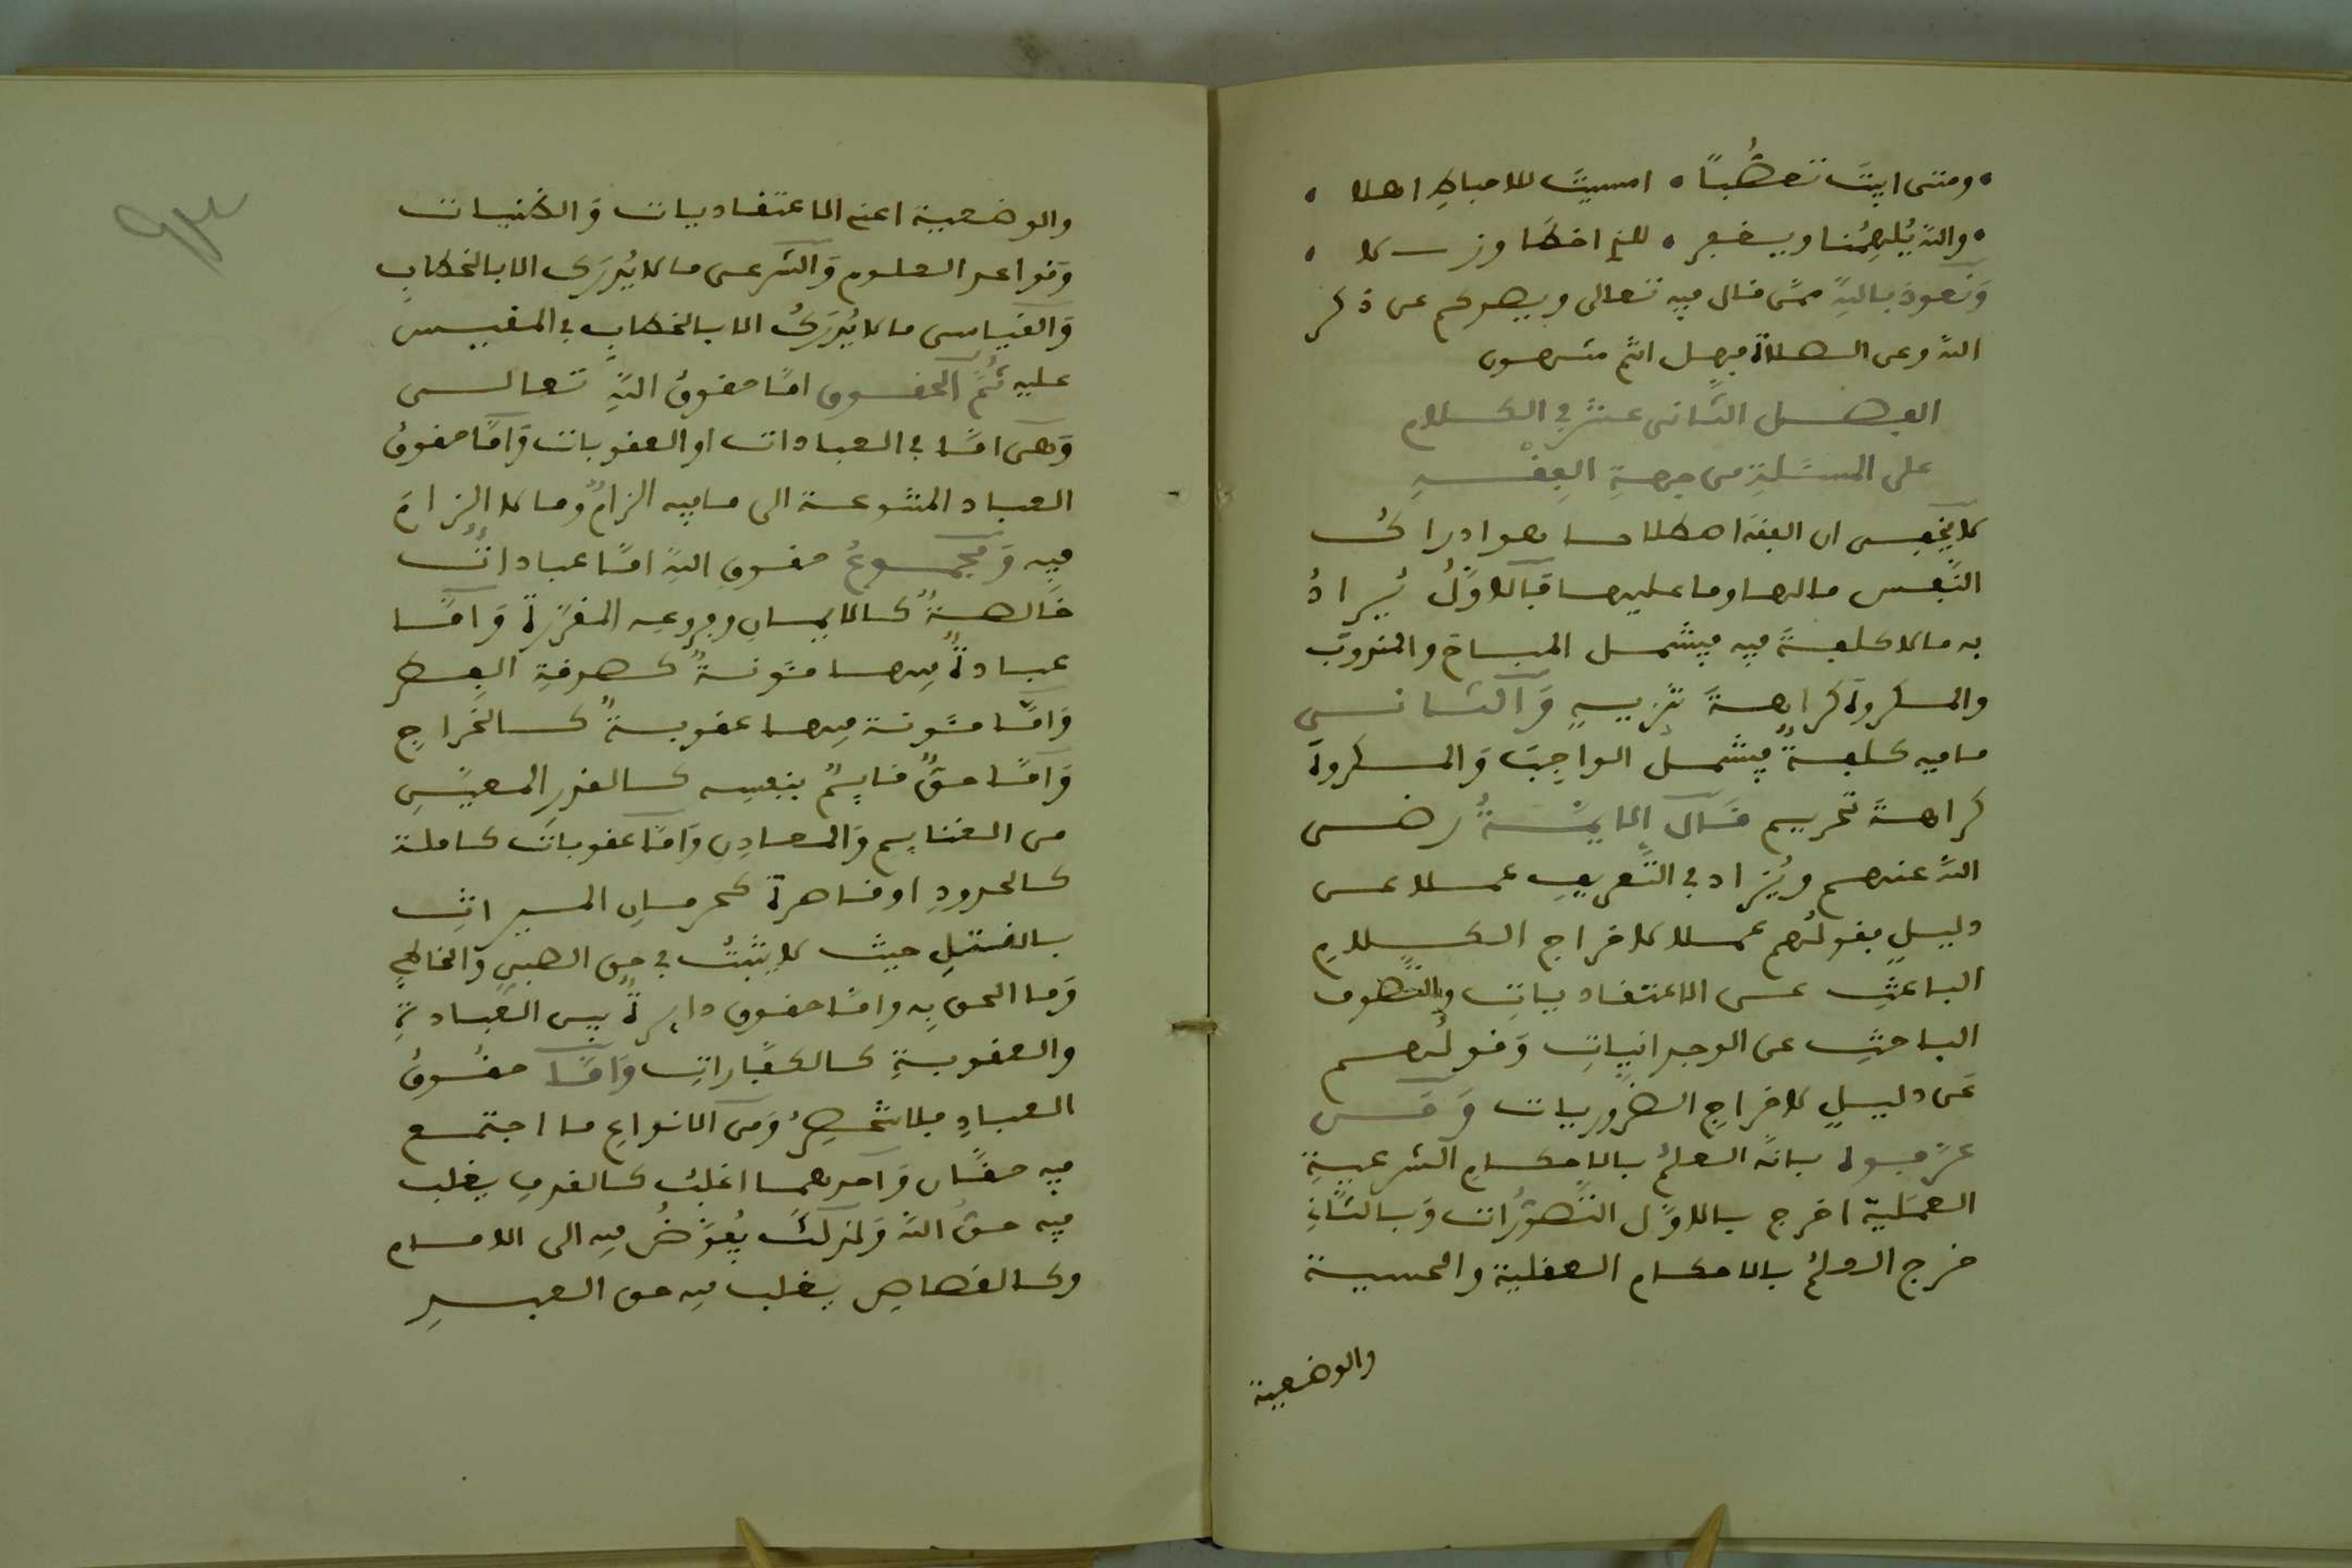 ومتى ابيتَ تعصُّباً امسيتَ للاحباطِ اهلا
واللهُ يُلهِمُنا ويغفر للخطا وزللا
وَنعوذ باللهِ ممّن قال فيه تعالى ويصدكم عن ذكر
اللهِ وعن الصلاة فهل انتم منتهون
الفصل الثاني عشر في الكلام
على المسئلةِ من جهةِ الفِقْهِ
لا يخفى ان الفقهَ اصطلاحا هو ادراكُ
النفس مالها وما عليها فالاوّلُ يُرادُ
به ما لا كلفةَ فيه فيشمل المباحَ والمندوبَ
والمكروهَ كراهةَ تنزيهٍ وَالثاني
ما فيه كلفةٌ فيشملُ الواجِبَ وَالمكروهَ
كراهةَ تحريم قال الايمّةُ رضي
اللهُ عنهم ويُزاد في التعريفِ عملا عن
دليلٍ فقولُهم عملا لاخراج الكلامِ
الباحثِ عن الاعتقادياتِ والتصوف
الباحثِ عن الوجدانياتِ وَقولُهم
عَن دليلٍ لاخراجِ الضروريات وَمَن
عرّفوه بانّه العلمُ بالاحكامِ الشرعيةِ
العمَليّة اخرج بالاوّل التصوُّرات وَبالثاني
خرج العلمُ بالاحكام العقلية والحسية
والوضعية
والوضعية اعني الاعتقاديات وَالظنيات
وَقواعد العلوم وَالشرعي ما لا يُدرَك الا بالخطابِ
وَالقياسي ما لا يُدرَكُ الا بالخطابِ في المقيس
عليه ثُمَّ الحقوق امّا حقوقُ اللهِ تعالى
وَهي امّا في العبادات او العقوبات وَامّا حقوقُ
العباد المتنوعة الى ما فيه الزامٌ وما لا الزامَ
فيه وَمجموعُ حقوق اللهِ امّا عباداتٌ
خالصةٌ كالايمانِ وفروعِه المقرّرة وَامّا
عبادةٌ فيها مئونةٌ كصدقةِ الفطر
وَامّا مئونة فيها عقوبةٌ كالخَراجِ
وَامّا حقٌّ قايمٌ بنفسِه كالقدرِ المعيّنِ
من الغنايم وَالمعادِن وَامّا عقوباتٌ كاملة
كالحدودِ او قاصرة كحرمانِ الميراثِ
بالقتلِ حيث لا يثبتُ في حق الصبي وَالخاطي
وَما الحق بِه وامّا حقوق دايرةٌ بين العبادةِ
والعقوبةِ كالكفّاراتِ وَامّا حقُوقُ
العبادِ فلا تحصرُ وَمن الانواعِ ما اجتمع
فيه حقّان وَاحدهما اغلبُ كالقذفِ يغلب
فيه حقُّ اللهِ وَلذلكَ يُفوَّضُ فيه الى الامام
وكالقصاصِ يغلب فيه حق العبدِ
٩٣